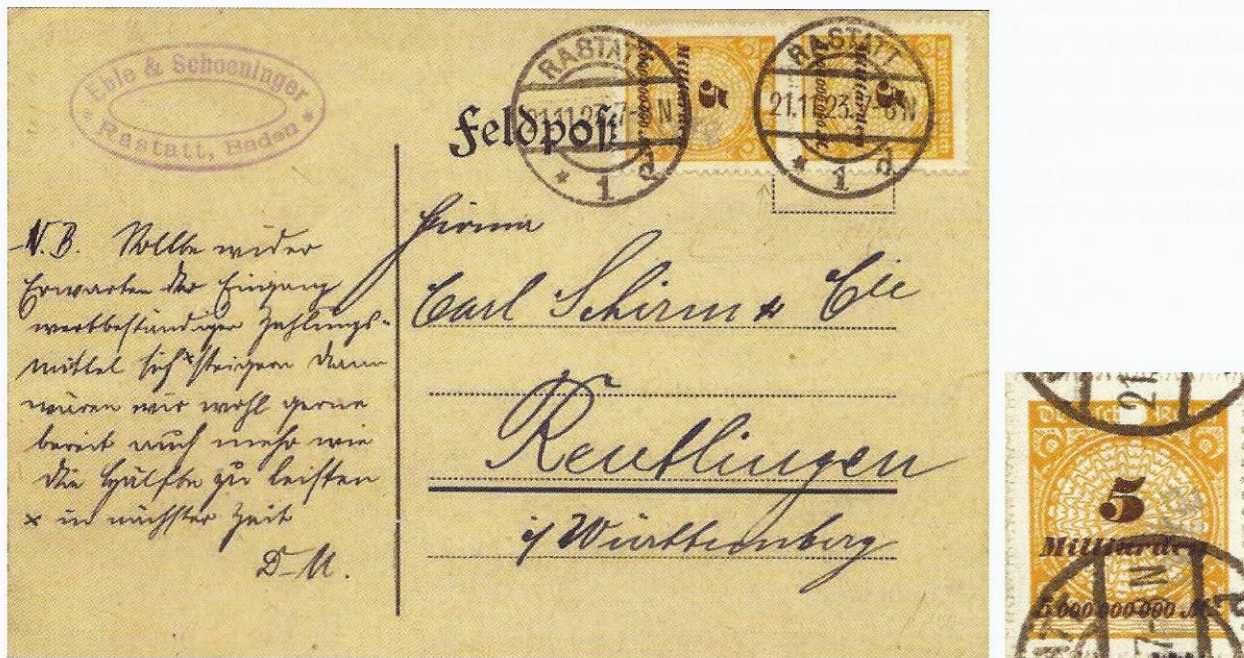 Eble & Schoeninger
* Rastatt, Baden *
Feldpost
RASTATT
21.11.23.7-8N
* 1 d
5
Milliarden
5 000 000 000 M.
RASTATT
21.11.23.7-8N
* 1 d
5
Milliarden
5 000 000 000 M.
N.B. Sollte wider
Erwarten der Eingang
wertbeständiger Zahlungs-
mittel sich × steigern dann
wären wir wohl gerne
bereit auch mehr wie
die Hälfte zu leisten
× in nächster Zeit
D. U.
Firma
Carl Schirm & Cie
Reutlingen
i/ Württemberg
Deutsches Reich
5
Milliarden
5 000 000 000 M.
21
7-8 N
d